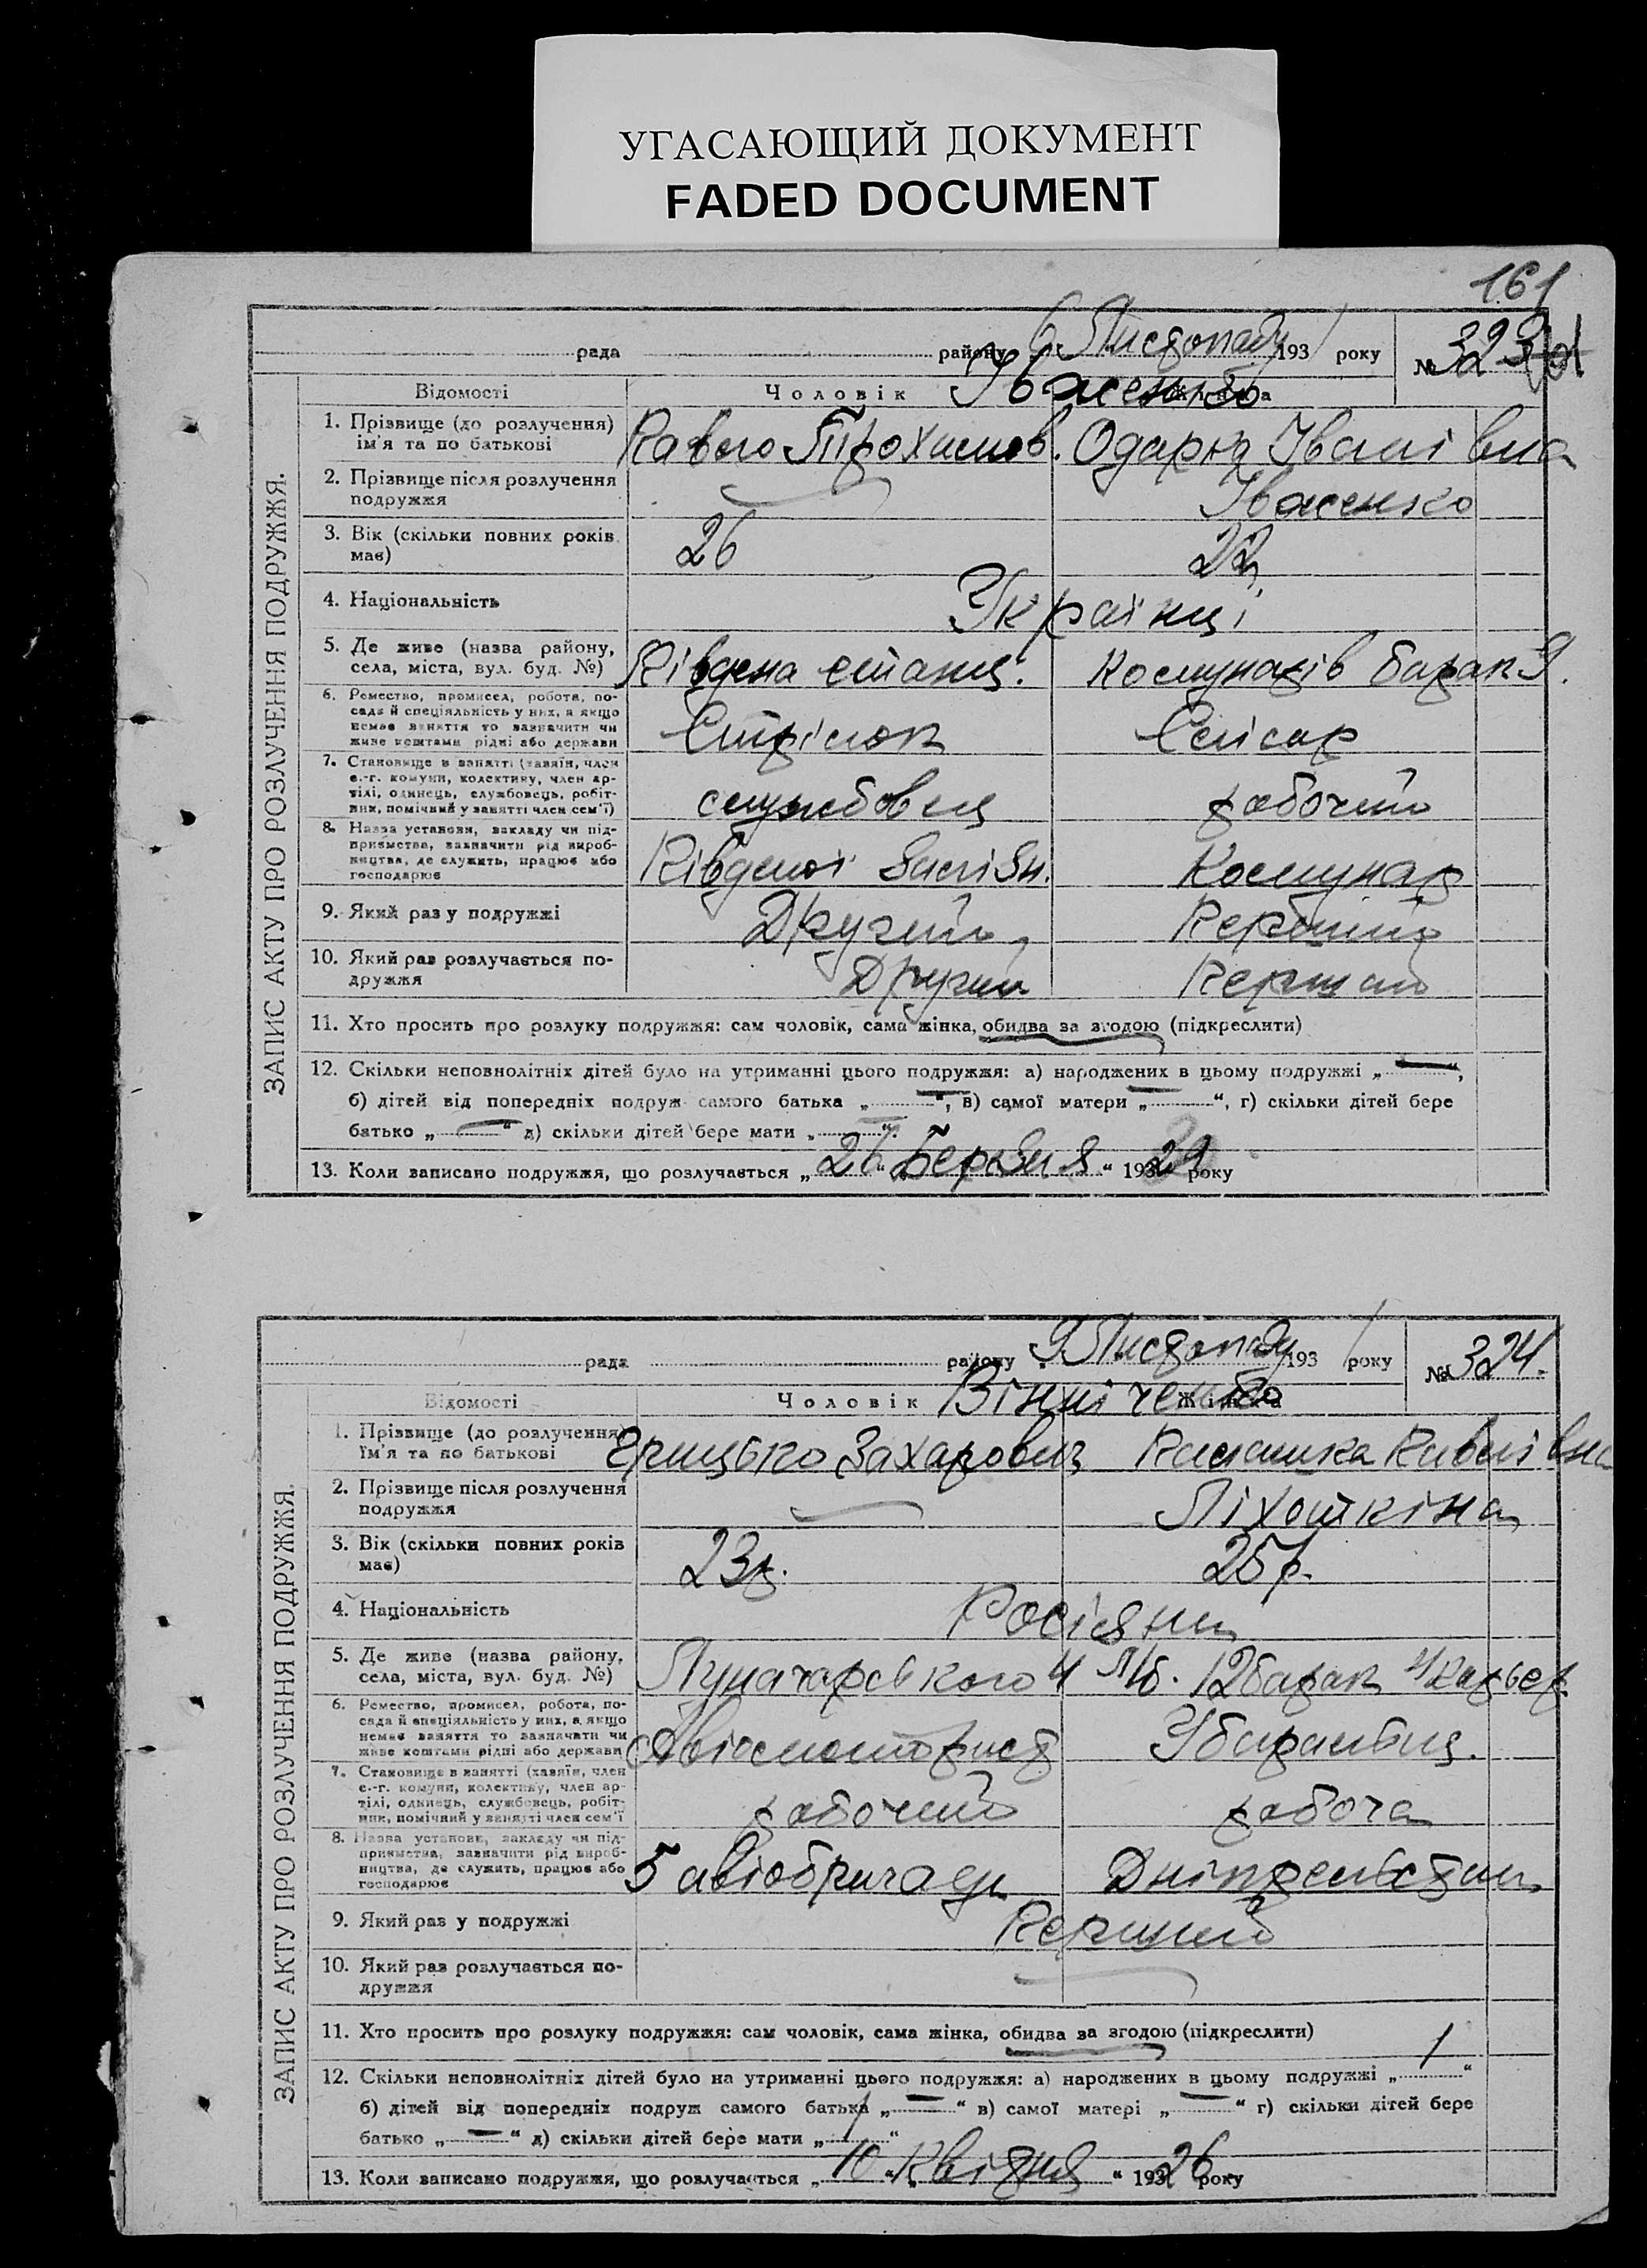 УГАСАЮЩИЙ ДОКУМЕНТ
FADED DOCUMENT
161
рада району 6 Листопаду 1931 року № 323
Відомості Чоловік Жінка
Івженко
ЗАПИС АКТУ ПРО РОЗЛУЧЕННЯ ПОДРУЖЖЯ.
1. Прізвище (до розлучення) ім'я та по батькові Павло Трохимов. Одарка Іванівна
2. Прізвище після розлучення подружжя Івженко
3. Вік (скільки повних років має) 26 22
4. Національність Українці
5. Де живе (назва району, села, міста, вул. буд. №) Південа станц. Комунарів барак 9.
6. Ремество, промисел, робота, посада й спеціяльність у них, а якщо немає заняття то зазначити чи живе коштами рідні або держави Стрілок Слісар
7. Становище в занятті (хазяїн, член с.-г. комуни, колективу, член артілі, одинець, службовець, робітник, помічний у занятті член сем'ї) службовец рабочий
8. Назва установи, закладу чи підприємства, зазначити рід виробництва, де служить, працює або господарює Південої Залізн. Комунар
9. Який раз у подружжі Другий Перший
10. Який раз розлучається подружжя Другий Перший
11. Хто просить про розлуку подружжя: сам чоловік, сама жінка, обидва за згодою (підкреслити)
12. Скільки неповнолітніх дітей було на утриманні цього подружжя: а) народжених в цьому подружжі „ — “,
б) дітей від попередніх подруж самого батька „ — “, в) самої матери „ — “, г) скільки дітей бере
батько „ — “ д) скільки дітей бере мати „ — “.
13. Коли записано подружжя, що розлучається „ 26 “ Березня “ 193 29 року
рада району 9 Листопаду 1931 року № 324.
Відомості Чоловік Жінка
Вінніченко
ЗАПИС АКТУ ПРО РОЗЛУЧЕННЯ ПОДРУЖЖЯ.
1. Прізвище (до розлучення) ім'я та по батькові Грицько Захарович Павлівна
2. Прізвище після розлучення подружжя Ліхоткіна
3. Вік (скільки повних років має) 23р. 25р.
4. Національність Росіяни
5. Де живе (назва району, села, міста, вул. буд. №) Луначарського 4 Л/б. 12барак 4карьер
6. Ремество, промисел, робота, посада й спеціяльність у них, а якщо немає заняття то зазначити чи живе коштами рідні або держави Авіомоторист Убиральщ.
7. Становище в занятті (хазяїн, член с.-г. комуни, колективу, член артілі, одинець, службовець, робітник, помічний у занятті член сем'ї рабочий рабоча
8. Назва установи, закладу чи підприємства, зазначити рід виробництва, де служить, працює або господарює 5 авіобригади
9. Який раз у подружжі Перший
10. Який раз розлучається подружжя
11. Хто просить про розлуку подружжя: сам чоловік, сама жінка, обидва за згодою (підкреслити)
12. Скільки неповнолітніх дітей було на утриманні цього подружжя: а) народжених в цьому подружжі „ 1 “
б) дітей від попередніх подруж самого батька „ — “ в) самої матері „ — “ г) скільки дітей бере
батько „ — “ д) скільки дітей бере мати „ 1 “
13. Коли записано подружжя, що розлучається „ 10 “ Квітня “ 193 26 року